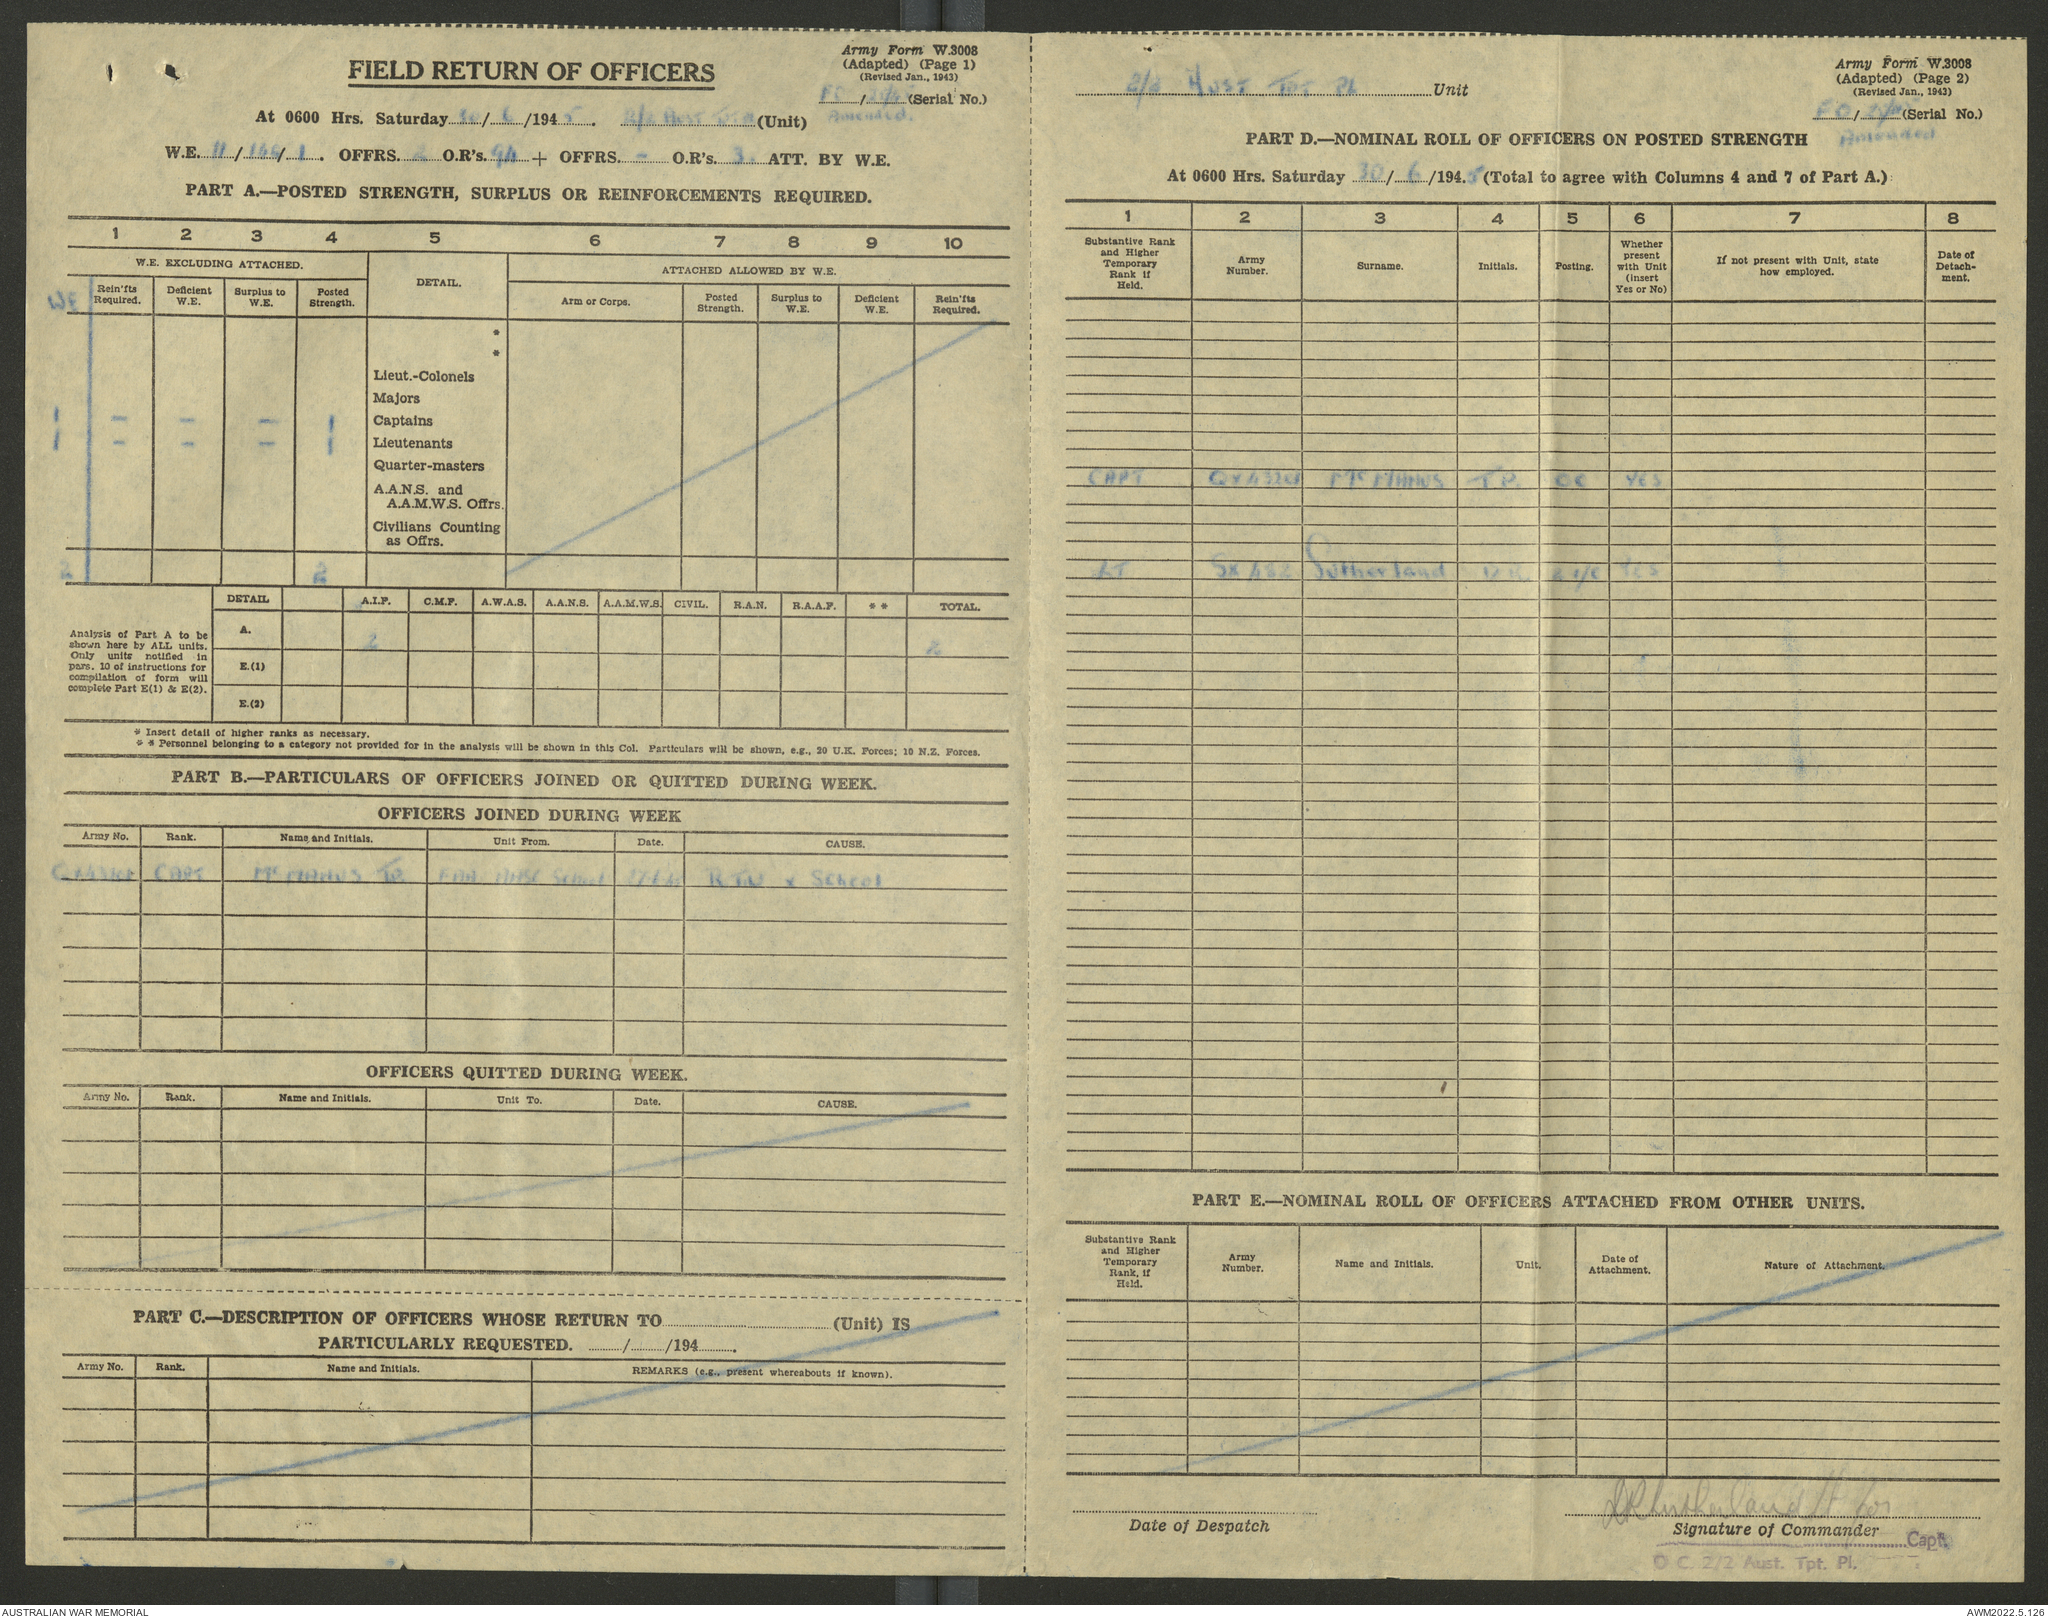 Army Form W.3008
(Adapted) (Page 1)
(Revised Jan., 1943)
FIELD RETURN OF OFFICERS
FO / (Serial No.)
Amended.
At 0600 Hrs. Saturday 30/6/1945. 2/2 Aust Tpt Pl (Unit)
W.E. 11/166/1. OFFRS. 2 O.R's. 94 + OFFRS. - O.R's. 3. ATT. BY W.E.
PART A.—POSTED STRENGTH, SURPLUS OR REINFORCEMENTS REQUIRED.
1 2 3 4 5 6 7 8 9 10
W.E. EXCLUDING ATTACHED. DETAIL. ATTACHED ALLOWED BY W.E.
WE Rein'fts Required. Deficient W.E. Surplus to W.E. Posted Strength. Arm or Corps. Posted Strength. Surplus to W.E. Deficient W.E. Rein'fts Required.
*
*
Lieut.-Colonels
Majors
1 - - - 1 Captains
1 - - - 1 Lieutenants
Quarter-masters
A.A.N.S. and
A.A.M.W.S. Offrs.
Civilians Counting
as Offrs.
2 2
DETAIL A.I.F. C.M.F. A.W.A.S. A.A.N.S. A.A.M.W.S. CIVIL. R.A.N. R.A.A.F. * * TOTAL.
Analysis of Part A to be
shown here by ALL units.
Only units notified in
pars. 10 of instructions for
compilation of form will
complete Part E(1) & E(2).
A. 2 2
E.(1)
E.(2)
* Insert detail of higher ranks as necessary.
* * Personnel belonging to a category not provided for in the analysis will be shown in this Col. Particulars will be shown, e.g., 20 U.K. Forces; 10 N.Z. Forces.
PART B.—PARTICULARS OF OFFICERS JOINED OR QUITTED DURING WEEK.
OFFICERS JOINED DURING WEEK
Army No. Rank. Name and Initials. Unit From. Date. CAUSE.
CAPT McMANUS T.P. School R.T.U x School
OFFICERS QUITTED DURING WEEK.
Army No. Rank. Name and Initials. Unit To. Date. CAUSE.
PART C.—DESCRIPTION OF OFFICERS WHOSE RETURN TO (Unit) IS
PARTICULARLY REQUESTED. / /194 .
Army No. Rank. Name and Initials. REMARKS (e.g., present whereabouts if known).
Army Form W.3008
(Adapted) (Page 2)
(Revised Jan., 1943)
2/2 Aust Tpt Pl Unit
FO / (Serial No.)
Amended
PART D.—NOMINAL ROLL OF OFFICERS ON POSTED STRENGTH
At 0600 Hrs. Saturday 30/6/1945 (Total to agree with Columns 4 and 7 of Part A.)
1 2 3 4 5 6 7 8
Substantive Rank and Higher Temporary Rank if Held. Army Number. Surname. Initials. Posting. Whether present with Unit (insert Yes or No) If not present with Unit, state how employed. Date of Detachment.
CAPT McMANUS T.P. OC YES
LT Sutherland 2 i/c YES
PART E.—NOMINAL ROLL OF OFFICERS ATTACHED FROM OTHER UNITS.
Substantive Rank and Higher Temporary Rank, if Held. Army Number. Name and Initials. Unit. Date of Attachment. Nature of Attachment.
Sutherland Lt for
Date of Despatch Signature of Commander
Capt.
O.C. 2/2 Aust. Tpt. Pl.
AUSTRALIAN WAR MEMORIAL AWM2022.5.126